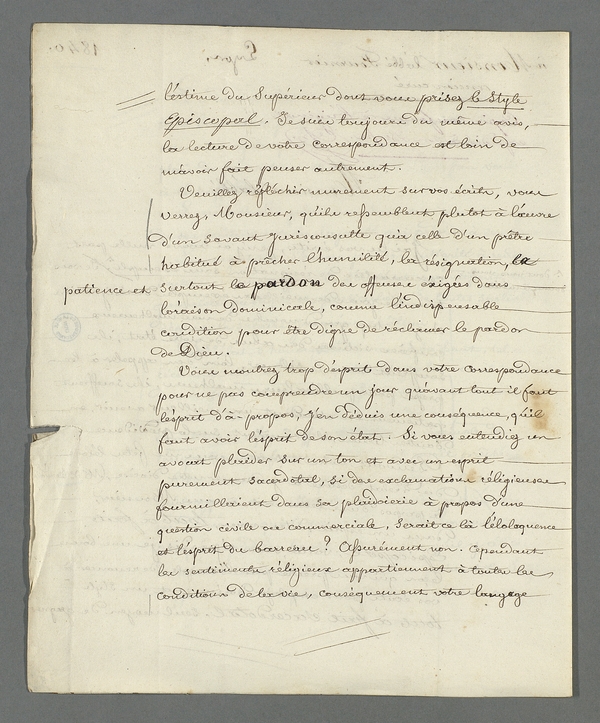 l'estime du Supérieur dont vous prisez le Style
Episcopal. Je suis toujours du même avis,
la lecture de votre correspondance est loin de
m'avoir fait penser autrement.
Veuillez réfléchir murement sur vos écrits, vous
verrez, Monsieur, qu'ils ressemblent plutot à l'œuvre
d'un savant Jurisconsulte qu'à celle d'un prêtre
habitué à prêcher l'humilité, la résignation, la
patience et surtout le pardon des offenses éxigées dans
l'oraison dominicale, comme l'indispensable
condition pour être digne de réclamer le pardon
de Dieu.
Vous montrez trop d'esprit dans votre correspondance
pour ne pas comprendre un jour qu'avant tout il faut
l'esprit d'à-propos, j'en déduis une conséquence, qu'il
faut avoir l'esprit de son état. Si vous entendiez un
avocat plaider sur un ton et avec un esprit
purement sacerdotal, si des exclamations réligieuses
fourmillaient dans sa plaidoierie à propos d'une
question civile ou commerciale, serait ce là l'éloquence
et l'ésprit du barreau ? Assurément non. Cependant
les sentiments réligieux appartiennent à toutes les
conditions de la vie, conséquement votre langage